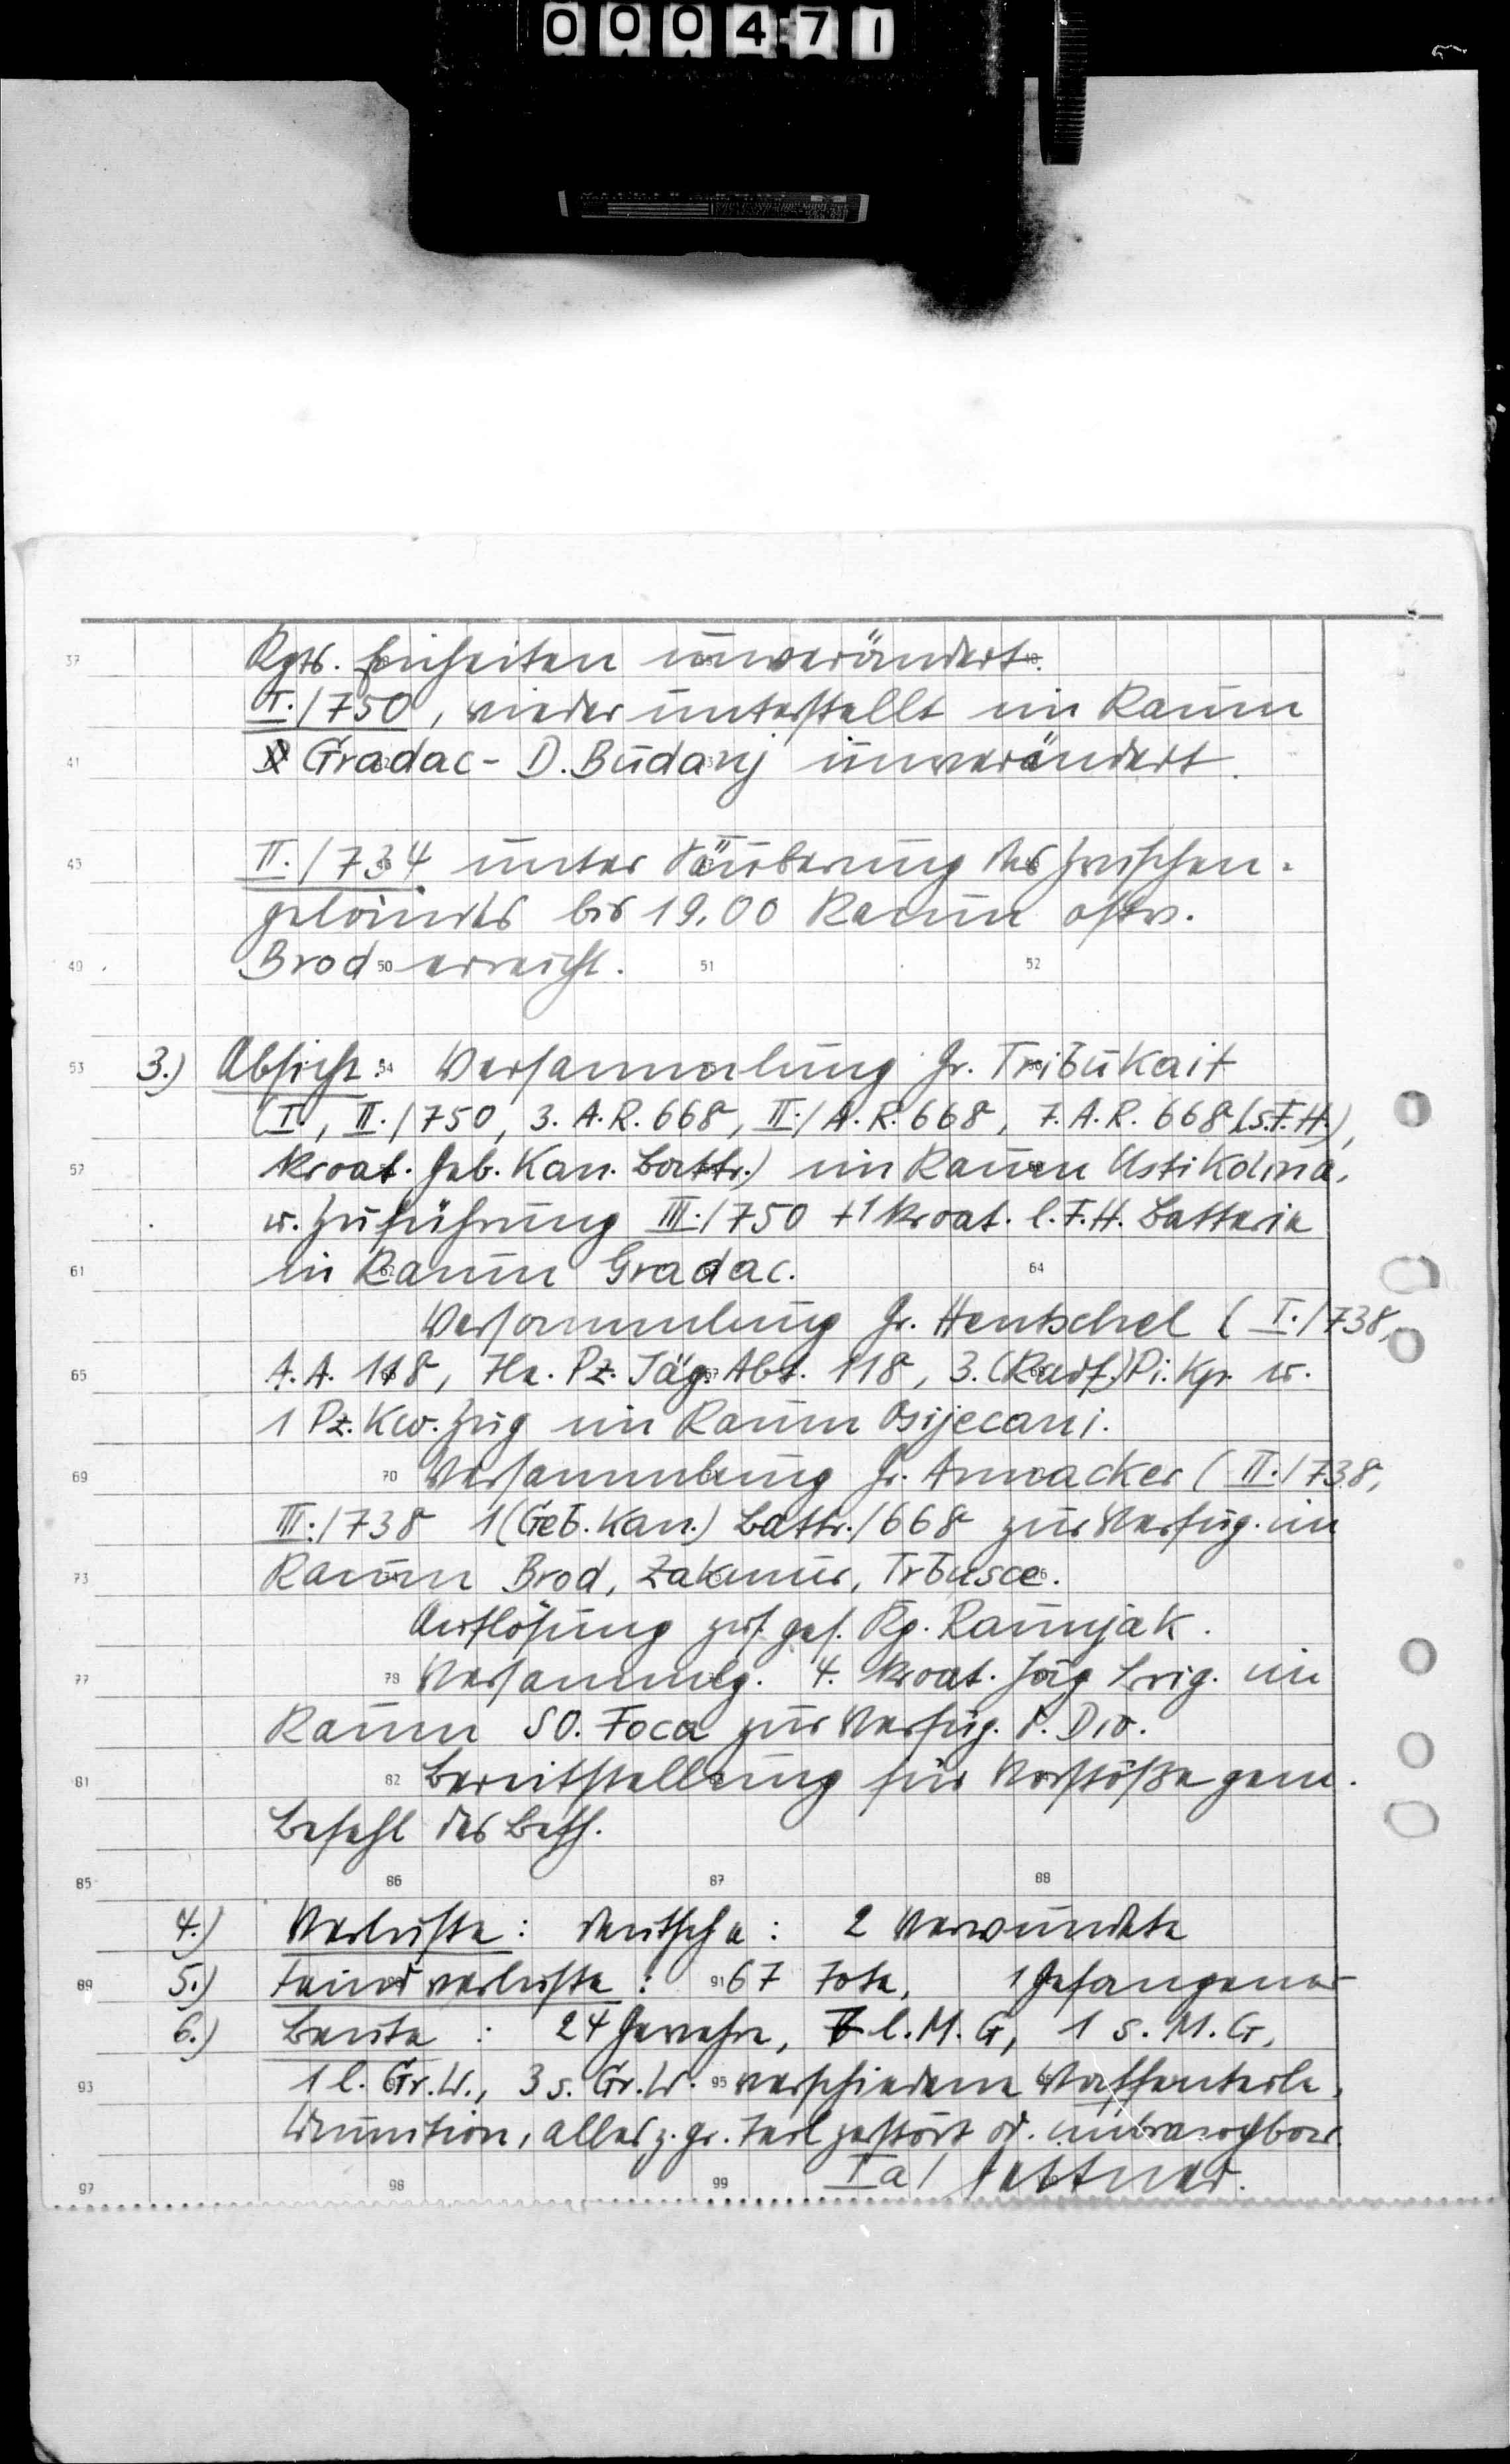 000471
Rgts. Einheiten unverändert.
II./750, wieder unterstellt im Raum
Gradac - D. Budanj unverändert.
II./734 unter Säuberung des Zwischen-
geländes bis 19.00 Raum ostw.
Brod erreicht.
3.) Absicht: Versammlung Gr. Tribukait
(I., II./750, 3. A.R. 668, II./A.R. 668, 7. A.R. 668 (s.F.H.),
kroat. Geb. Kan. Battr.) im Raum Ustikolina,
u. Zuführung III./750 + 1 kroat. l.F.H. Batterie
in Raum Gradac.
Versammlung Gr. Hentschel (I./738,
A.A. 118, Tle. Pz. Jäg. Abt. 118, 3. (Radf.) Pi. Kp. u.
1 Pz. Kw. Zug im Raum Osijecani.
Versammlung Gr. Annacker (II./738,
III./738 1 (Geb. Kan.) Battr./668 zur Verfüg. im
Raum Brod, Zakmur, Trbusce.
Auflösung zus. ges. Kp. Raunjak.
Versammlg. 4. kroat. Jäg Brig. im
Raum SO. Foca zur Verfüg. d. Div.
Bereitstellung für Vorstöße gem.
Befehl des Befh.
4.) Verluste: deutsche: 2 Verwundete
5.) Feindverluste: 67 Tote, 1 Gefangener
6.) Beute: 24 Gewehre, 7 l.M.G, 1 s.M.G,
1 l. Gr.W., 3 s. Gr.W. verschiedene Waffenteile,
Munition, alles z. gr. Teil zerstört od. unbrauchbar.
Ia/